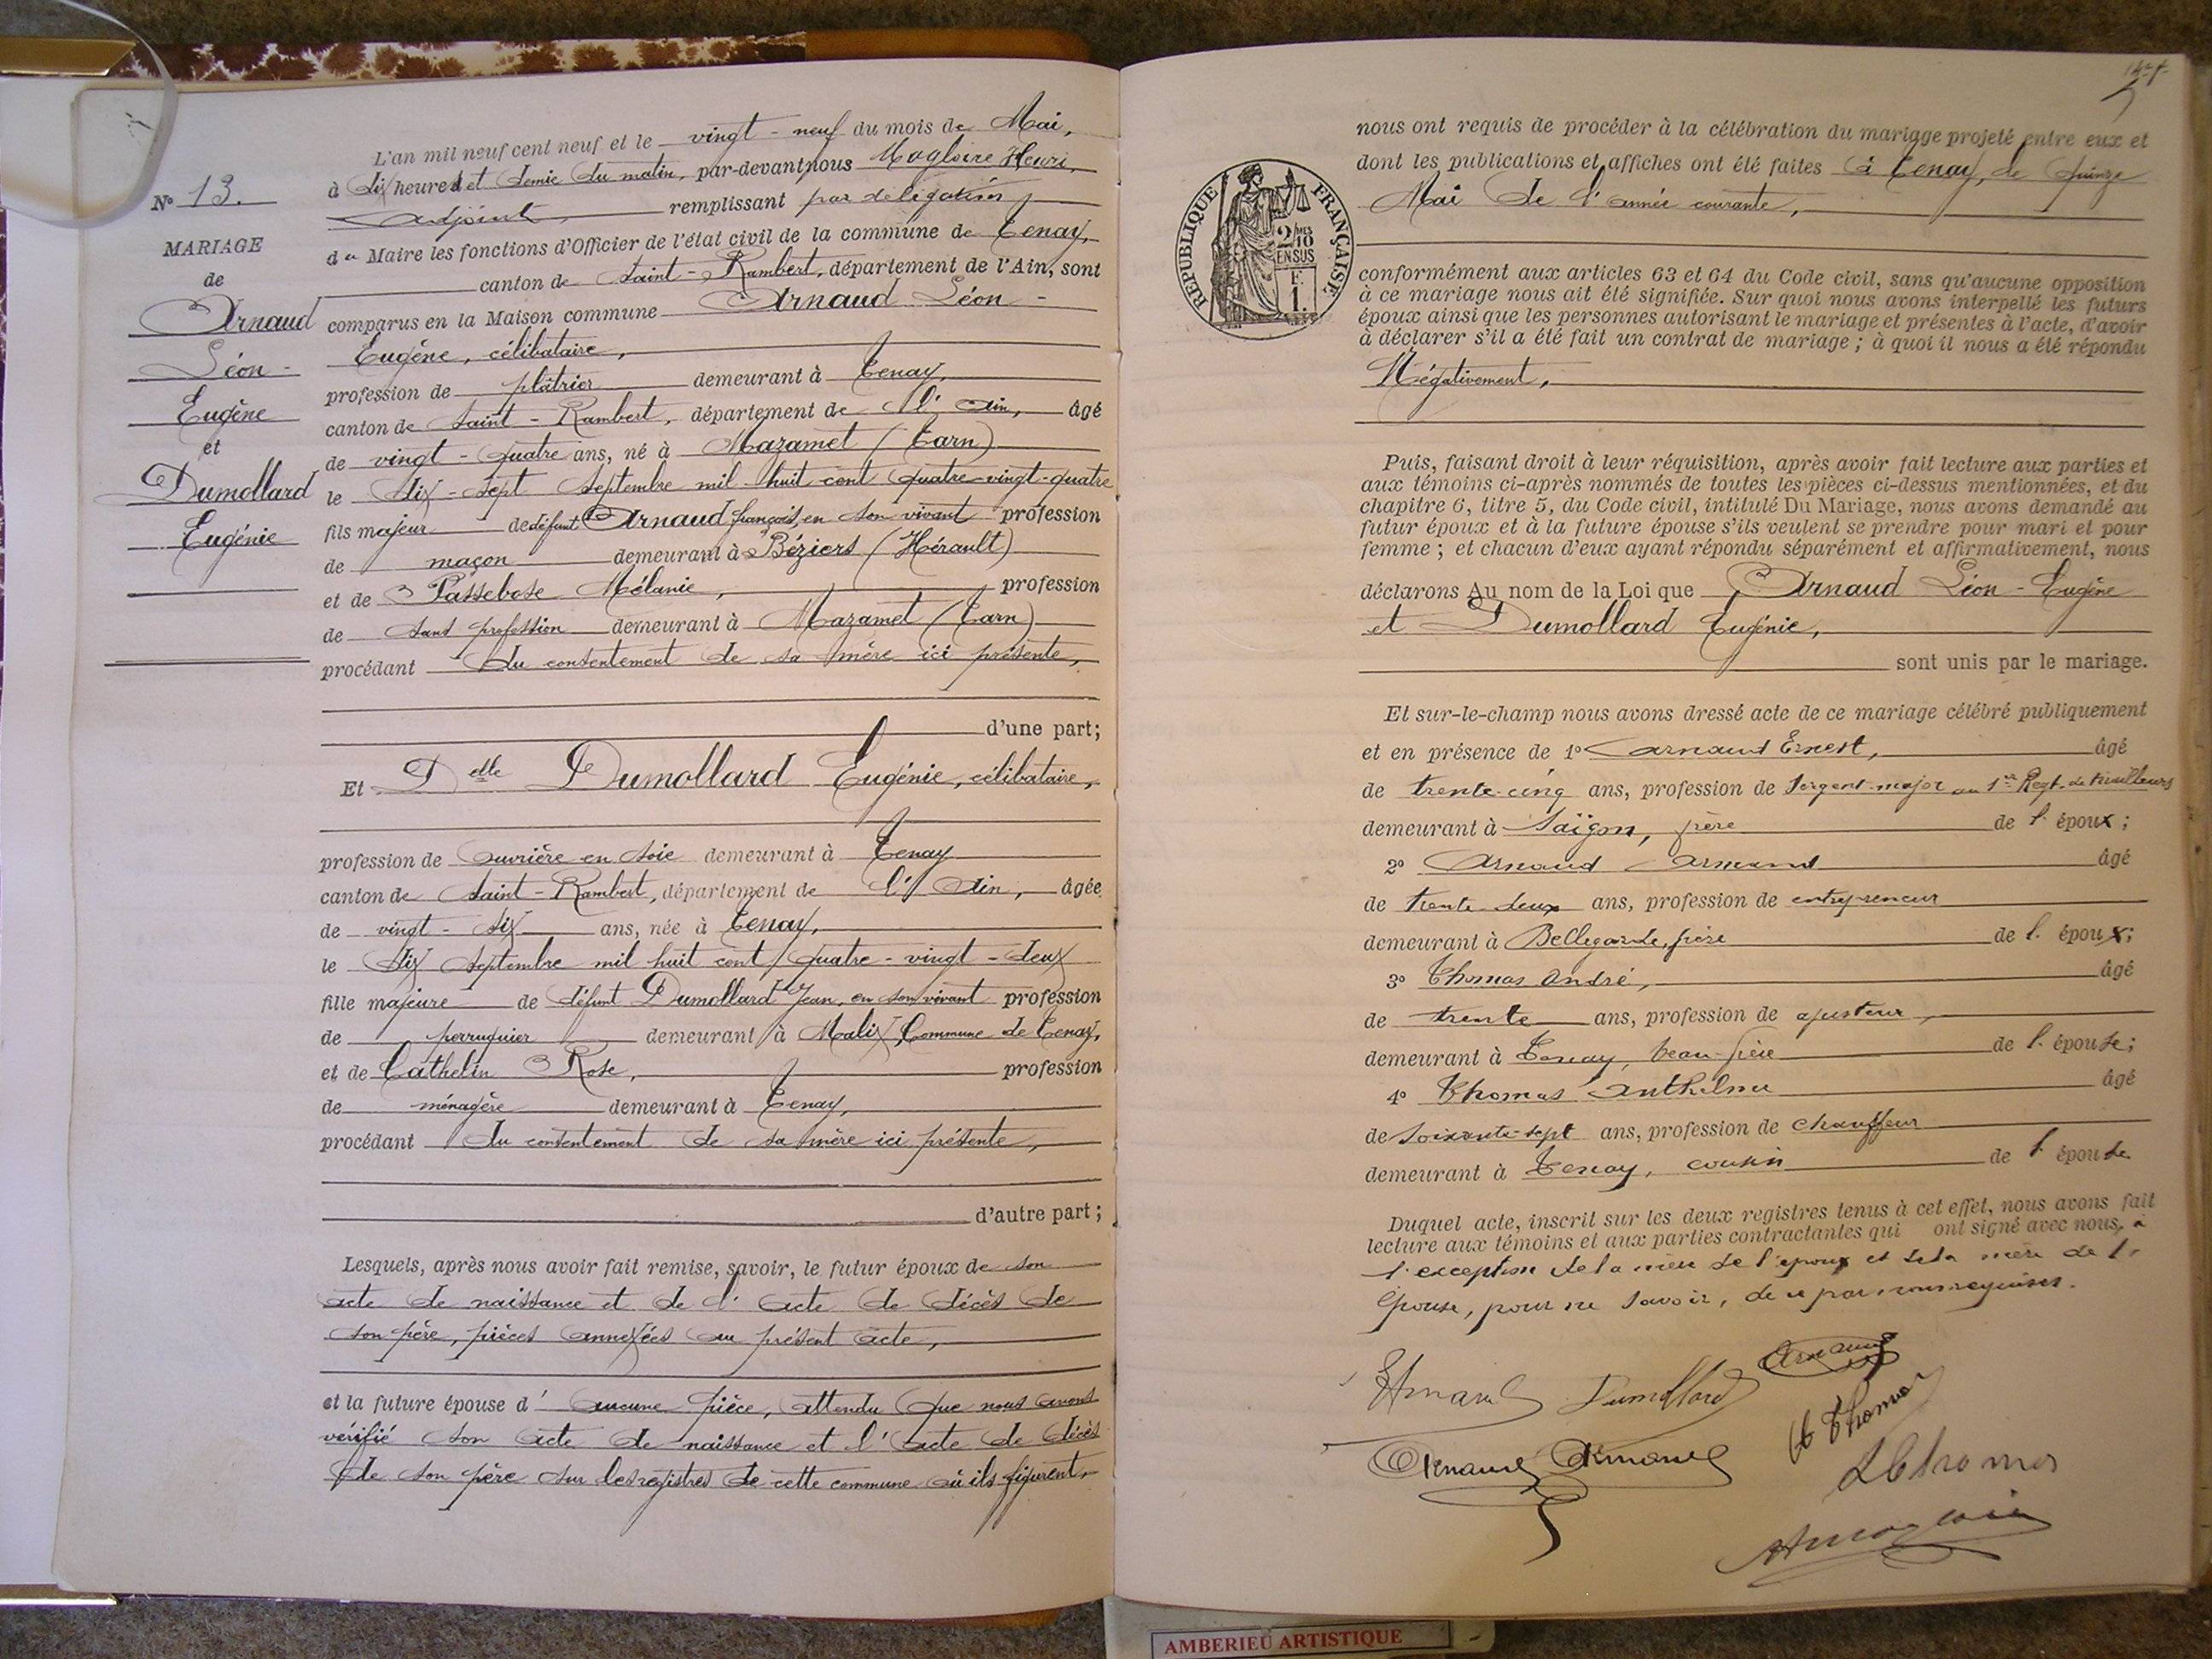 N° 13.
MARIAGE
de
Arnaud
Léon-
Eugène
et
Dumollard
Eugénie
L'an mil neuf cent neuf et le vingt-neuf du mois de Mai,
à dix heures et demie du matin, par-devant nous Magloire Henri,
adjoint, remplissant par délégation
du Maire les fonctions d'Officier de l'état civil de la commune de Tenay,
canton de Saint-Rambert, département de l'Ain, sont
comparus en la Maison commune Arnaud Léon-
Eugène, célibataire,
profession de plâtrier demeurant à Tenay,
canton de Saint-Rambert, département de l'Ain, âgé
de vingt-quatre ans, né à Mazamet (Tarn)
le dix-sept septembre mil huit cent quatre-vingt-quatre
fils majeur de défunt Arnaud françois, en son vivant profession
de maçon demeurant à Béziers (Hérault)
et de Passebosc Mélanie, profession
de sans profession demeurant à Mazamet (Tarn)
procédant du consentement de sa mère ici présente,
d'une part;
Et Delle Dumollard Eugénie, célibataire,
profession de ouvrière en soie demeurant à Tenay
canton de Saint-Rambert, département de l'Ain, âgée
de vingt-six ans, née à Tenay,
le dix septembre mil huit cent quatre-vingt-deux
fille majeure de défunt Dumollard Jean, en son vivant profession
de perruquier demeurant à Malix, Commune de Tenay,
et de Cathelin Rose, profession
de ménagère demeurant à Tenay,
procédant du consentement de sa mère ici présente,
d'autre part;
Lesquels, après nous avoir fait remise, savoir, le futur époux de son
acte de naissance et de l'acte de décès de
son père, pièces annexées au présent acte,
et la future épouse d'aucune pièce, attendu que nous avons
vérifié son acte de naissance et l'acte de décès
de son père sur les registres de cette commune où ils figurent,
nous ont requis de procéder à la célébration du mariage projeté entre eux et
dont les publications et affiches ont été faites à Tenay, le quinze
Mai de l'année courante,
RÉPUBLIQUE FRANÇAISE
2/10
EN SUS
F.
1.
conformément aux articles 63 et 64 du Code civil, sans qu'aucune opposition
à ce mariage nous ait été signifiée. Sur quoi nous avons interpellé les futurs
époux ainsi que les personnes autorisant le mariage et présentes à l'acte, d'avoir
à déclarer s'il a été fait un contrat de mariage; à quoi il nous a été répondu
Négativement,
Puis, faisant droit à leur réquisition, après avoir fait lecture aux parties et
aux témoins ci-après nommés de toutes les pièces ci-dessus mentionnées, et du
chapitre 6, titre 5, du Code civil, intitulé Du Mariage, nous avons demandé au
futur époux et à la future épouse s'ils veulent se prendre pour mari et pour
femme; et chacun d'eux ayant répondu séparément et affirmativement, nous
déclarons Au nom de la Loi que Arnaud Léon-Eugène
et Dumollard Eugénie,
sont unis par le mariage.
Et sur-le-champ nous avons dressé acte de ce mariage célébré publiquement
et en présence de 1° Arnaud Ernest, âgé
de trente-cinq ans, profession de Sergent-major au 1er Regt. de tirailleurs
demeurant à Saïgon, frère de l'époux;
2° Arnaud Armand âgé
de trente-deux ans, profession de entrepreneur
demeurant à Bellegarde, frère de l'époux;
3° Thomas André, âgé
de trente ans, profession de ajusteur,
demeurant à Tenay, beau-frère de l'épouse;
4° Thomas Anthelme âgé
de soixante-sept ans, profession de chauffeur
demeurant à Tenay, cousin de l'épouse
Duquel acte, inscrit sur les deux registres tenus à cet effet, nous avons fait
lecture aux témoins et aux parties contractantes qui ont signé avec nous, à
l'exception de la mère de l'époux et de la mère de l'
épouse, pour ne savoir, de ce par nous requises.
Arnaud
EArnaud Dumollard
Thomas
Arnaud Armand
Thomas
HMagloire
AMBERIEU ARTISTIQUE